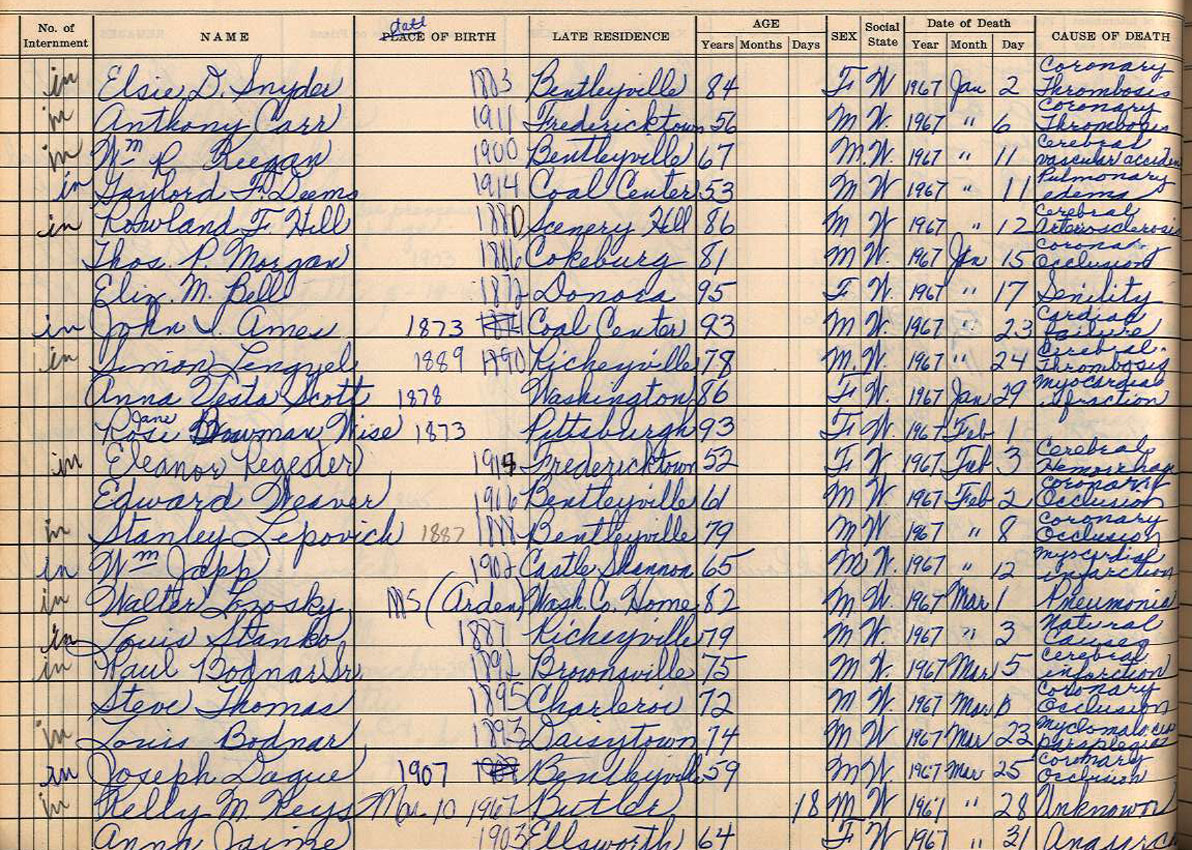 No. of Internment NAME date PLACE OF BIRTH LATE RESIDENCE AGE Years Months Days SEX Social State Date of Death Year Month Day CAUSE OF DEATH
in Elsie D. Snyder 1883 Bentleyville 84 F W 1967 Jan 2 Coronary Thrombosis
in Anthony Carr 1911 Fredericktown 56 M W. 1967 " 6 Coronary Thrombosis
in Wm R. Reegan 1900 Bentleyville 67 M. W. 1967 " 11 Cerebral vascular acciden
in Gaylord F. Deems 1914 Coal Center 53 M W. 1967 " 11 Pulmonary edema
in Rowland F Hill 1880 Scenery Hill 86 M W 1967 " 12 Cerebral arteriosclerosis
Thos. P. Morgan 1886 Cokeburg 81 M W. 1967 Jan 15 Coronary Occlusion
Eliz. M. Bell 1872 Donora 95 F W. 1967 " 17 Senility
in John I. Ames 1873 Coal Center 93 M W. 1967 " 23 Cardiac failure
in Simon Lengyel 1889 1890 Richeyville 78 M. W. 1967 " 24 Cerebral Thrombosis
Anna Vesta Scott 1878 Washington 86 F W. 1967 Jan 29 Myocardial infraction
Rose Jane Bowman Wise 1873 Pittsburgh 93 F W 1967 Feb 1
in Eleanor Regester 1914 Fredericktown 52 F W 1967 Feb 3 Cerebral Hemorrhage
Edward Weaver 1906 Bentleyville 61 M W 1967 Feb 2 Coronary Occlusion
in Stanley Lepovich 1887 1888 Bentleyville 79 M W 1967 " 8 Coronary Occlusion
in Wm Japp 1902 Castle Shannon 65 M W. 1967 " 12 Myocardial infarction
in Walter Lozosky (Arden) Wash. Co. Home 82 M W. 1967 Mar 1 Pneumonia
in Louis Stanko 1887 Richeyville 79 M W. 1967 " 3 Natural Causes
in Paul Bodnar Sr. 1892 Brownsville 75 M W. 1967 Mar 5 Cerebral infarction
Steve Thomas 1895 Charleroi 72 M W 1967 Mar Coronary Occlusion
in Louis Bodnar 1893 Daisytown 74 M W 1967 Mar 23 paraplegia
in Joseph Dague 1907 Bentleyvill 59 M W 1967 Mar 25 Coronary Occlusion
in Kelly M. Keys Mar. 10 1967 Butler 18 M W 1967 " 28 Unknown
Anna Jaime 1903 Ellsworth 64 F W 1967 " 31 Anasarca